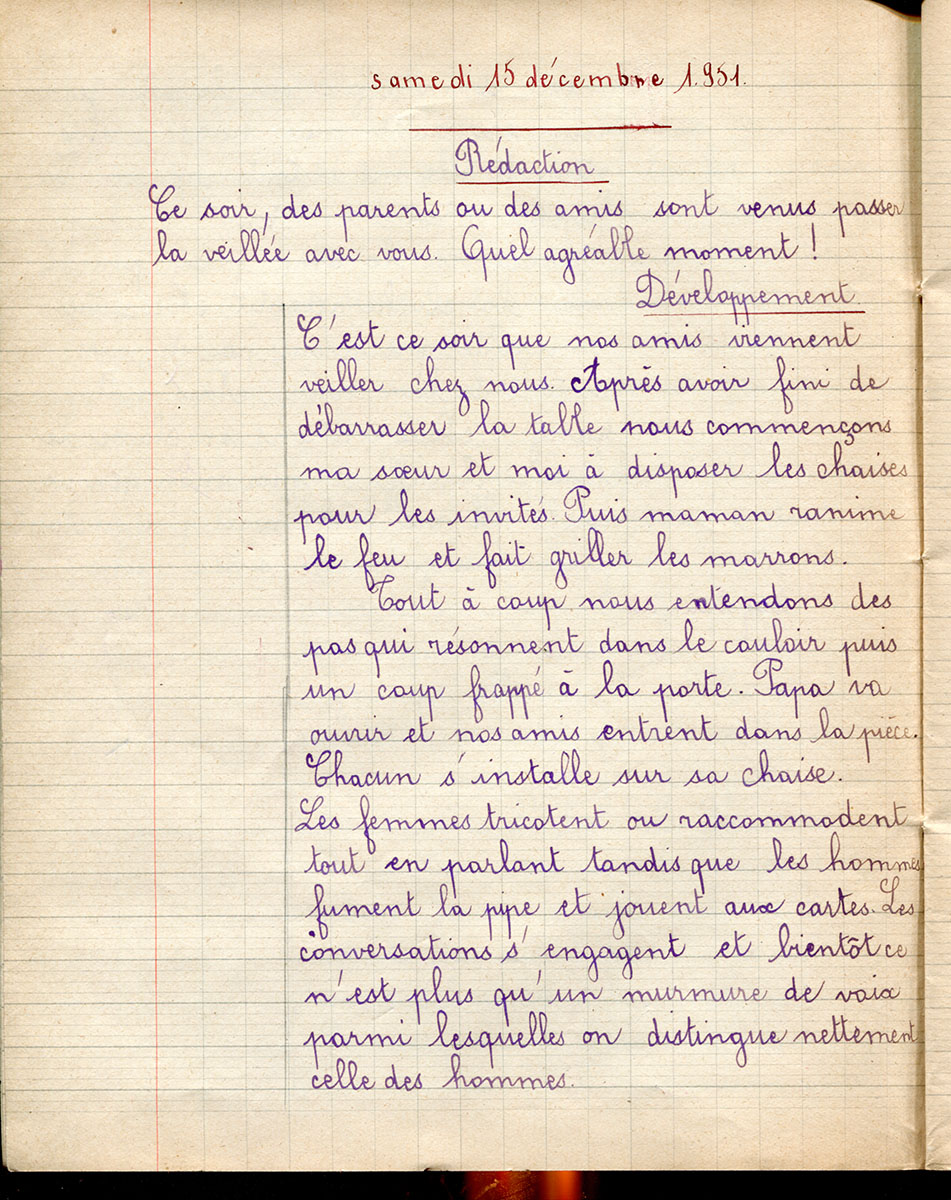 samedi 15 décembre 1.951.
Rédaction
Ce soir, des parents ou des amis sont venus passer
la veillée avec vous. Quel agréable moment !
Développement.
C'est ce soir que nos amis viennent
veiller chez nous. Après avoir fini de
débarrasser la table nous commençons
ma sœur et moi à disposer les chaises
pour les invités. Puis maman ranime
le feu et fait griller les marrons.
Tout à coup nous entendons des
pas qui résonnent dans le couloir puis
un coup frappé à la porte. Papa va
ouvrir et nos amis entrent dans la pièce.
Chacun s'installe sur sa chaise.
Les femmes tricotent ou raccommodent
tout en parlant tandis que les hommes
fument la pipe et jouent aux cartes. Les
conversations s'engagent et bientôt ce
n'est plus qu'un murmure de voix
parmi lesquelles on distingue nettement
celle des hommes.